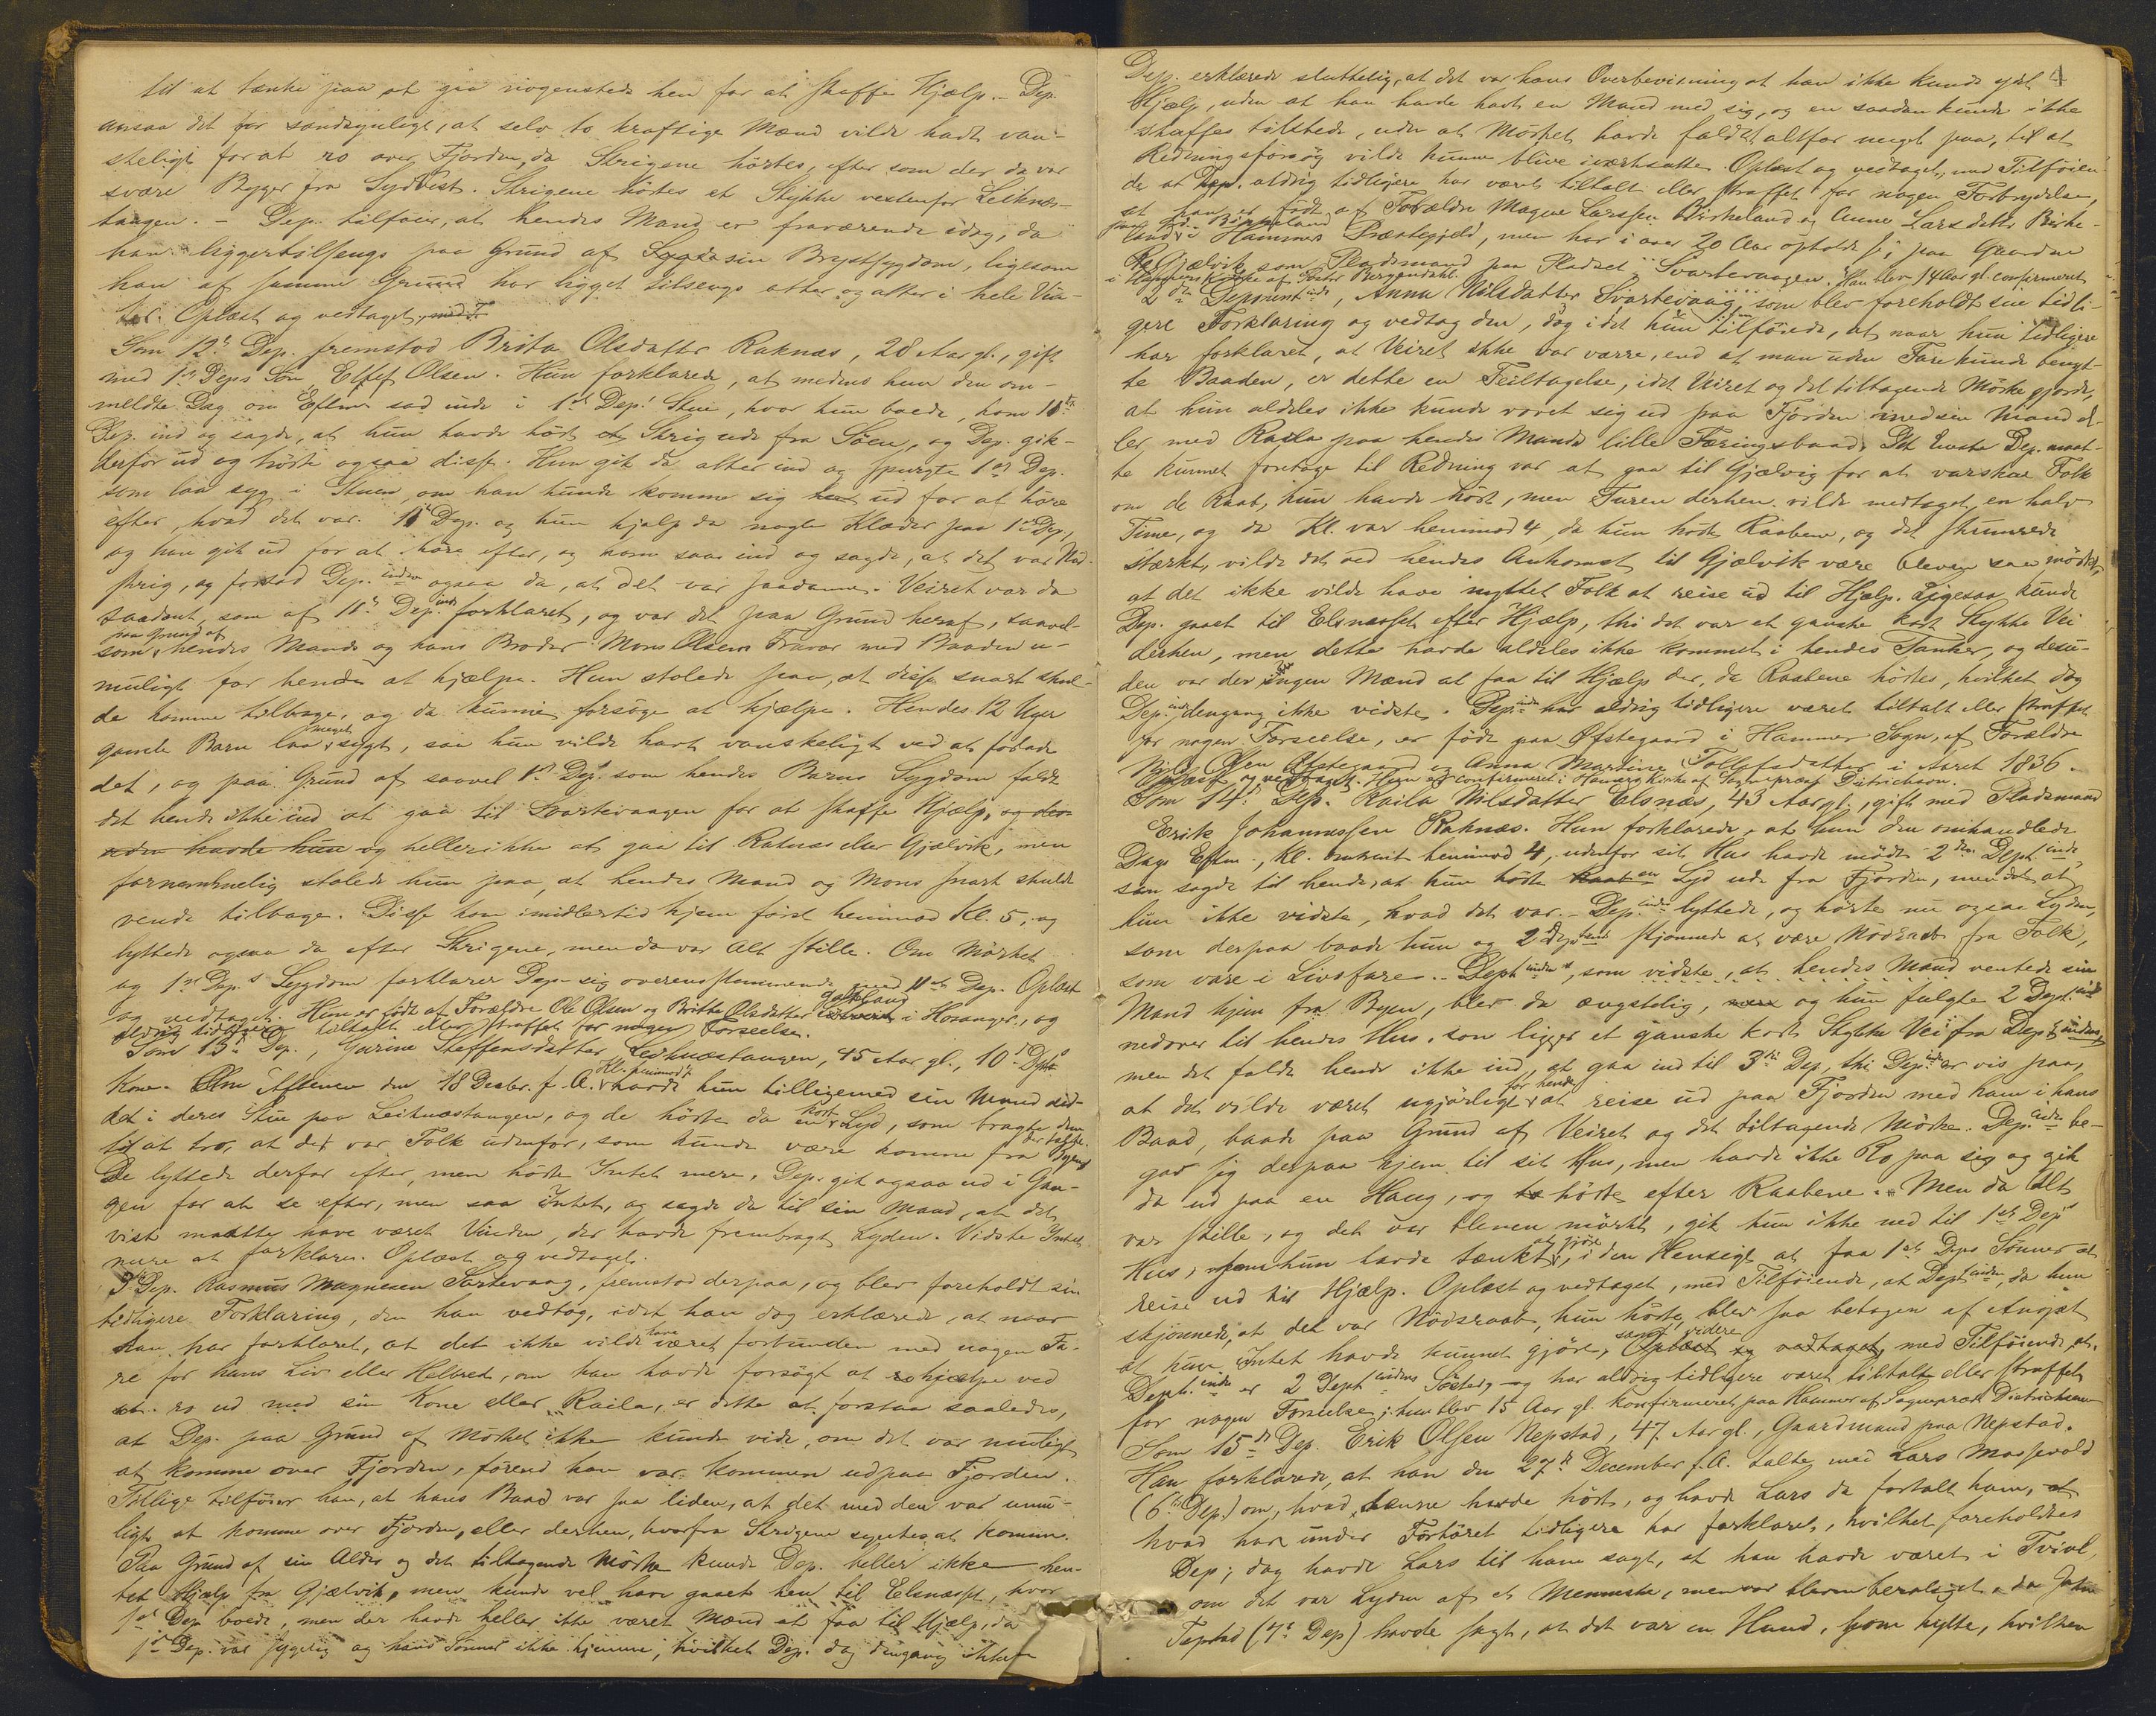 til at tænke paa at gaa nogensteds hen for at skaffe Hjælp. - Dep.
ansaa det for sandsynligt, at selv to kraftige Mænd vilde havt van-
skeligt for at ro over Fjorden, da Skrigene hørtes, efter som der da var
svære Byger fra Sydvest. Skrigene hørtes et Stykke vestenfor Leiknæs-
tangen. - Dep. tilføier, at hendes Mand er fraværende idag, da
han ligger tilsengs paa Grund af sin Brystsygdom, ligesom
han af samme Grund har ligget tilsengs atter og atter i hele Vin-
ter. Oplæst og vedtaget,
Som 12te Dep. fremstod Brita Olsdatter Raknæs, 28 Aar gl., gift
med 1ste Deps Søn, Ellef Olsen. Hun forklarede, at medens hun den om-
meldte Dag om Efterm. sad inde i 1ste Dep.s Stue, hvor hun boede, kom 11te
Dep. ind og sagde, at hun havde hørt Skrig ude fra Søen, og Dep. gik
derfor ud og hørte ogsaa disse. Hun gik da atter ind og spurgte 1ste Dep.
som laa syg i Stuen, om han kunde komme sig ud for at høre
efter, hvad det var. 11te Dep. og hun hjalp da nogle Klæder paa 1ste Dep.,
og han gik ud for at høre efter, og kom saa ind og sagde, at det var Nød-
skrig, og forstod Dep.inden ogsaa da, at det var saadanne. Veiret var da
saadant, som af 11te Dep.inde forklaret, og var det paa Grund heraf, saavel-
som paa Grund af hendes Mands og hans Broder Mons Olsens Fravær med Baaden u-
muligt for hende at hjælpe. Hun stolede paa, at disse snart skul-
de komme tilbage, og da kunne forsøge at hjælpe. Hendes 12 Uger
gamle Barn laa meget sygt, saa hun vilde havt vanskeligt ved at forlade
det, og paa Grund af saavel 1ste Dep.s som hendes Barns Sygdom faldt
det hende ikke ind at gaa til Svartevaagen for at skaffe Hjælp, og des-
uden havde hun og heller ikke at gaa til Raknæs eller Gjælvik, men
fornemmelig stolede hun paa, at hendes Mand og Mons snart skulde
vende tilbage. Disse kom imidlertid hjem først henimod Kl. 5, og
lyttede ogsaa da efter Skrigene, men da var Alt stille. Om Mørket
og 1ste Dep.s Sygdom forklarer Dep. sig overensstemmende med 11te Dep. Oplæst
og vedtaget. Hun er født af Forældre Ole Olsen og Britha Olsdatter i Hosanger, og
aldrig tidligere tiltalt eller straffet for nogen Forseelse.
Som 13de Dep., Gurine Steffensdatter Leiknæstangen, 45 Aar gl., 10de Dept.s
Kone. Om Aftenen den 18 Decbr. f. A. Kl. henimod havde hun tilligemed sin Mand sid-
det i deres Stue paa Leiknæstangen, og de hørte da en kort Lyd, som bragte dem
til at tro, at det var Folk udenfor, som kunde være komne fra Byen.
De lyttede derfor efter, men hørte Intet mere. Dep. gik ogsaa ud i Gan-
gen for at se efter, men saa Intet, og sagde da til sin Mand, at det
vist maatte have været Vinden, der havde frembragt Lyden. Vidste Intet
mere at forklare. Oplæst og vedtaget.
3de Dep. Rasmus Magnesen Svartevaag, fremstod derpaa, og blev foreholdt sin
tidligere Forklaring, den han vedtog, idet han dog erklærede, at naar
han har forklaret, at det ikke vilde have været forbunden med nogen Fa-
re for hans Liv eller Helbred, om han havde forsøgt at hjælpe ved
at ro ud med sin Kone eller Raila, er dette at forstaa saaledes,
at Dep. paa Grund af Mørket ikke kunde vide, om det var muligt
at komme over Fjorden, førend han var kommen ud paa Fjorden.
Tillige tilføier han, at hans Baad var saa liden, at det med den var umu-
ligt at komme over Fjorden, eller derhen, hvorfra Skrigene syntes at komme.
Paa Grund af sin Alder og det tiltagende Mørke kunde Dep. heller ikke hen-
tet Hjælp fra Gjælvik, men kunde vel have gaaet hen til Elsnæsset, hvor
1ste Dep. boede, men der havde heller ikke været Mænd at faa til Hjælp, da
1ste Dep. var sygelig og hans Sønner ikke hjemme, hvilket Dep. dog dengang ikke
4
Dep. erklærede sluttelig, at det var hans Overbevisning at han ikke kunde ydet
Hjælp, uden at han havde havt en Mand med sig, og en saadan kunde ikke
skaffes tilstede, uden at Mørket havde faldt altfor meget paa, til at
Redningsforsøg vilde kunne blive iværksatte. Oplæst og vedtaget, med Tilføien-
de at Dep. aldrig tidligere har været tiltalt eller straffet for nogen Forbrydelse,
at han er født af Forældre Magne Larssen Birkeland og Anne Larsdatter Birke-
land paa Gd. Birkeland i Hammer Præstegjeld, men har i over 20 Aar opholdt sig paa Gaarden
Gjælvik som Pladsmand paa Pladset Svartevaagen. Han blev 14 Aar gl. confirmeret
i Hammers Kirke af Pastor Bergendahl.
2den Deponentinde, Anna Nilsdatter Svartevaag, som blev foreholdt sin tidli-
gere Forklaring og vedtog den, dog idet hun tilføiede, at naar hun tidligere
har forklaret, at Veiret ikke var værre, end at man uden Fare kunde benyt-
te Baaden, er dette en Feiltagelse, idet Veiret og det tiltagende Mørke gjorde,
at hun aldeles ikke kunde vovet sig ud paa Fjorden med sin Mand el-
ler med Raila paa hendes Mands lille Færingsbaad. Det Eneste Dep. maat-
te kunnet foretage til Redning var at gaa til Gjælvig for at varskoe Folk
om de Raab, hun havde hørt, men Turen derhen vilde medtaget en halv
Time, og da Kl. var henimod 4, da hun hørte Raabene, og det skumrede
stærkt, vilde det ved hendes Ankomst til Gjælvik være bleven saa mørkt,
at det ikke vilde have nyttet Folk at reise ud til Hjælp. Ligesaa kunde
Dep. gaaet til Elsnæsset efter Hjælp, thi det var et ganske kort Stykke Vei
derhen, men dette havde aldeles ikke kommet i hendes Tanker, og desu-
den var der ingen Mænd at faa til Hjælp der, da Raabene hørtes, hvilket dog
Dep.inden dengang ikke vidste. Dep.inden har aldrig tidligere været tiltalt eller straffet
for nogen Forseelse, er født paa Øfstegaard i Hammer Sogn, af Forældre
Nils Olsen Øfstegaard og Anna Martine Tollefsdatter i Aaret 1836.
Oplæst og vedtaget. Hun er confirmeret i Hamers Kirke af Sognepræst Ditrichson.
Som 14de Dep. Raila Nilsdatter Elsnæs, 43 Aar gl., gift med Pladsmand
Erik Johannessen Raknæs. Hun forklarede, at hun den omhandlede
Dags Efterm., Kl. omtrent henimod 4, udenfor sit Hus havde mødt 2den Dept.inde
som sagde til hende, at hun hørte en Lyd ude fra Fjorden, men at
hun ikke vidste, hvad det var. - Dep.inden lyttede, og hørte nu ogsaa Lyden,
som derpaa baade hun og 2den Dep.inde skjønnede at være Nødraab fra Folk,
som vare i Livsfare. - Dept.inden, som vidste, at hendes Mand ventede sin
Mand hjem fra Byen, blev da ængstelig, og hun fulgte 2 Dept.inde
nedover til hendes Hus, som ligger et ganske kort Stykke Vei fra Dept.indens,
men det faldt hende ikke ind, at gaa ind til 3die Dep., thi Dep.inden er vis paa,
at det vilde været ugjørligt for hende at reise ud paa Fjorden med ham i hans
Baad, baade paa Grund af Veiret og det tiltagende Mørke. Dep.inden be-
gav sig derpaa hjem til sit Hus, men havde ikke Ro paa sig og gik
da ud paa en Haug, og hørte efter Raabene. Men da Alt
var stille, og det var bleven mørkt, gik hun ikke ned til 1ste Dep.s
Hus, som hun havde tænkt at gjøre, i den Hensigt at faa 1ste Deps Sønner at
reise ud til Hjælp. Oplæst og vedtaget, med Tilføiende, at Dept.inden, da hun
skjønnede, at det var Nødsraab, hun hørte, blev saa betagen af Angst
at hun Intet havde kunnet gjøre, samt videre Oplæst og vedtaget, med Tilføiende, at
Dept.inden er 2 Dept.indens Søster, og har aldrig tidligere været tiltalt eller straffet
for nogen Forseelse; hun blev 15 Aar gl. konfirmeret paa Hammer af Sognepræst Ditrichson.
Som 15de Dep. Erik Olsen Nepstad, 47 Aar gl., Gaardmand paa Nepstad.
Han forklarede, at han den 27de December f. A. talte med Lars
(6te Dep.) om, hvad denne havde hørt, og havde Lars da fortalt ham,
hvad han under Forhøret tidligere har forklaret, hvilket foreholdtes
Dep; dog havde Lars til ham sagt, at han havde været i Tvivl,
om det var Lyden af et Menneske, men var bleven beroliget, da John
(7de Dep) havde sagt, at det var en Hund, som hylte, hvilken